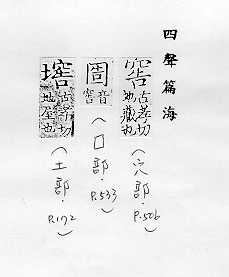 四聲篇海
窖 古孝切地藏也
(穴部·P.506)
音窖
(囗部·P.533)
古孝切地室也
(土部·P.192)